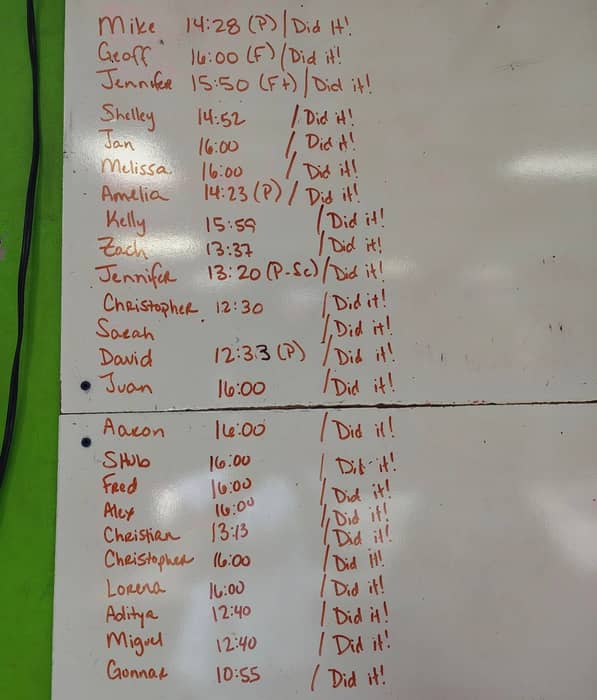 Mike 14:28 (P) / Did it!
Geoff 16:00 (F) / Did it!
Jennifer 15:50 (F+) / Did it!
Shelley 14:52 / Did it!
Jan 16:00 / Did it!
Melissa 16:00 / Did it!
Amelia 14:23 (P) / Did it!
Kelly 15:59 / Did it!
Zach 13:37 / Did it!
Jennifer 13:20 (P-Sc) / Did it!
Christopher 12:30 / Did it!
Sarah / Did it!
David 12:33 (P) / Did it!
Juan 16:00 / Did it!
Aaron 16:00 / Did it!
SHub 16:00 / Did it!
Fred 16:00 / Did it!
Alex 16:00 / Did it!
Christian 13:13 / Did it!
Christopher 16:00 / Did it!
Lorena 16:00 / Did it!
Aditya 12:40 / Did it!
Miguel 12:40 / Did it!
Gonnar 10:55 / Did it!